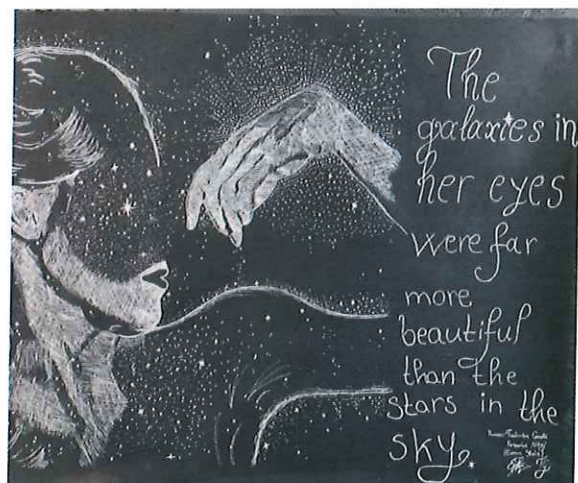 The
galaxies in
her eyes
were far
more
beautiful
than the
stars in the
sky.